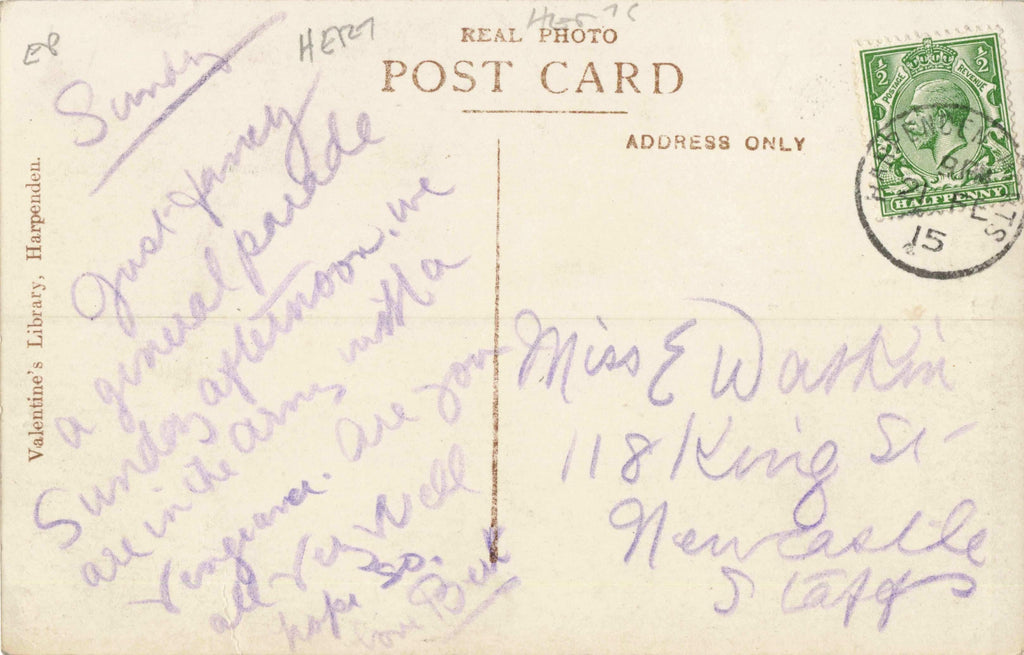 REAL PHOTO
POST CARD
ADDRESS ONLY
Valentine's Library, Harpenden.
HERT
Sunday
Just fancy
a general parade
Sunday afternoon, we
are in the army with a
vengeance. Are you
all very well
hope so.
love Bert
Miss E Watkin
118 King St
Newcastle
Staffs
½ ½
POSTAGE REVENUE
HALFPENNY
HARPENDEN
15